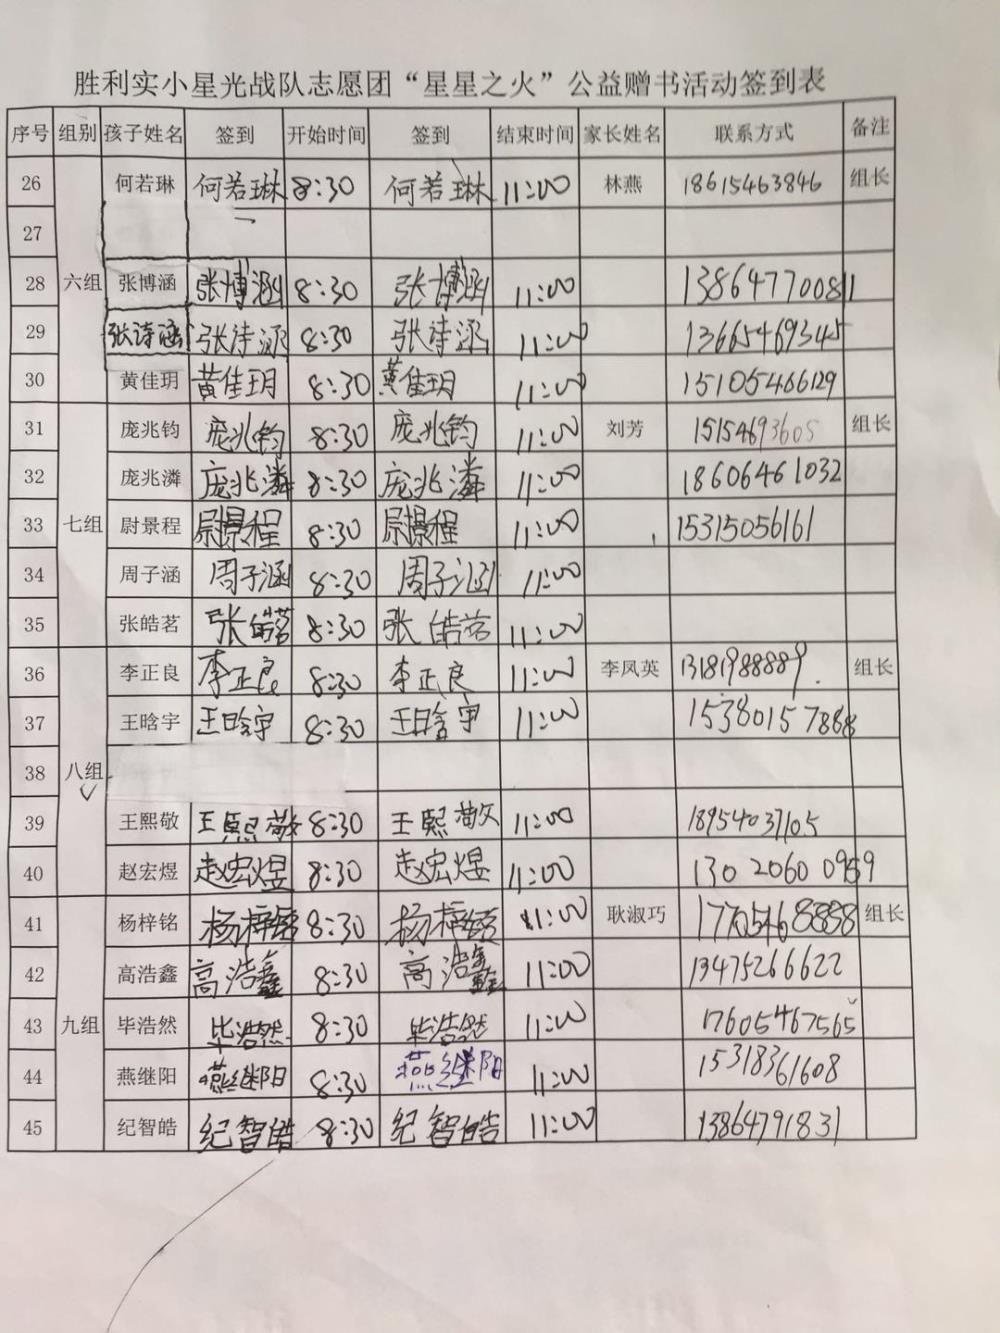 胜利实小星光战队志愿团“星星之火”公益赠书活动签到表
序号 组别 孩子姓名 签到 开始时间 签到 结束时间 家长姓名 联系方式 备注
26 何若琳 何若琳 8:30 何若琳 11:00 林燕 18615463846 组长
27
28 六组 张博涵 张博涵 8:30 张博涵 11:00 13864770081
29 张诗涵 张诗涵 8:30 张诗涵 11:00 13665469345
30 黄佳玥 黄佳玥 8:30 黄佳玥 11:00 15105466129
31 庞兆钧 庞兆钧 8:30 庞兆钧 11:00 刘芳 15154693605 组长
32 庞兆潾 庞兆潾 8:30 庞兆潾 11:00 18606461032
33 七组 尉景程 尉景程 8:30 尉景程 11:00 15315056161
34 周子涵 周子涵 8:30 周子涵 11:00
35 张皓茗 张皓茗 8:30 张皓茗 11:00
36 李正良 李正良 8:30 李正良 11:00 李凤英 13181988889. 组长
37 王晗宇 王晗宇 8:30 王晗宇 11:00 15380157888
38 八组
39 王熙敬 王熙敬 8:30 王熙敬 11:00 18954037105
40 赵宏煜 赵宏煜 8:30 赵宏煜 11:00 13020600959
41 杨梓铭 杨梓铭 8:30 杨梓铭 11:00 耿淑巧 17705468888 组长
42 高浩鑫 高浩鑫 8:30 高浩鑫 11:00 13475266622
43 九组 毕浩然 毕浩然 8:30 毕浩然 11:00 17605467565
44 燕继阳 燕继阳 8:30 燕继阳 11:00 15318361608
45 纪智皓 纪智皓 8:30 纪智皓 11:00 13864791831